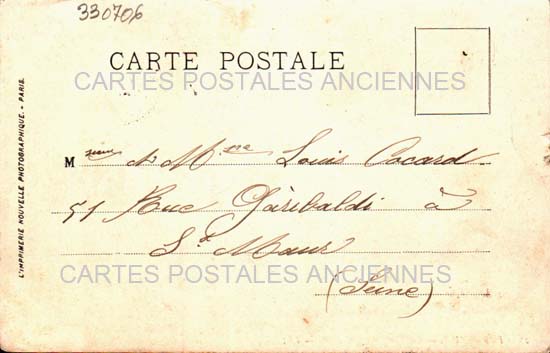 330706
CARTE POSTALE
CARTES POSTALES ANCIENNES
Monsieur & Mme Louis Cocard
51 Rue Garibaldi à
St Maur
CARTES POSTALES ANCIENNES
(Seine)
L'IMPRIMERIE NOUVELLE PHOTOGRAPHIQUE. - PARIS.